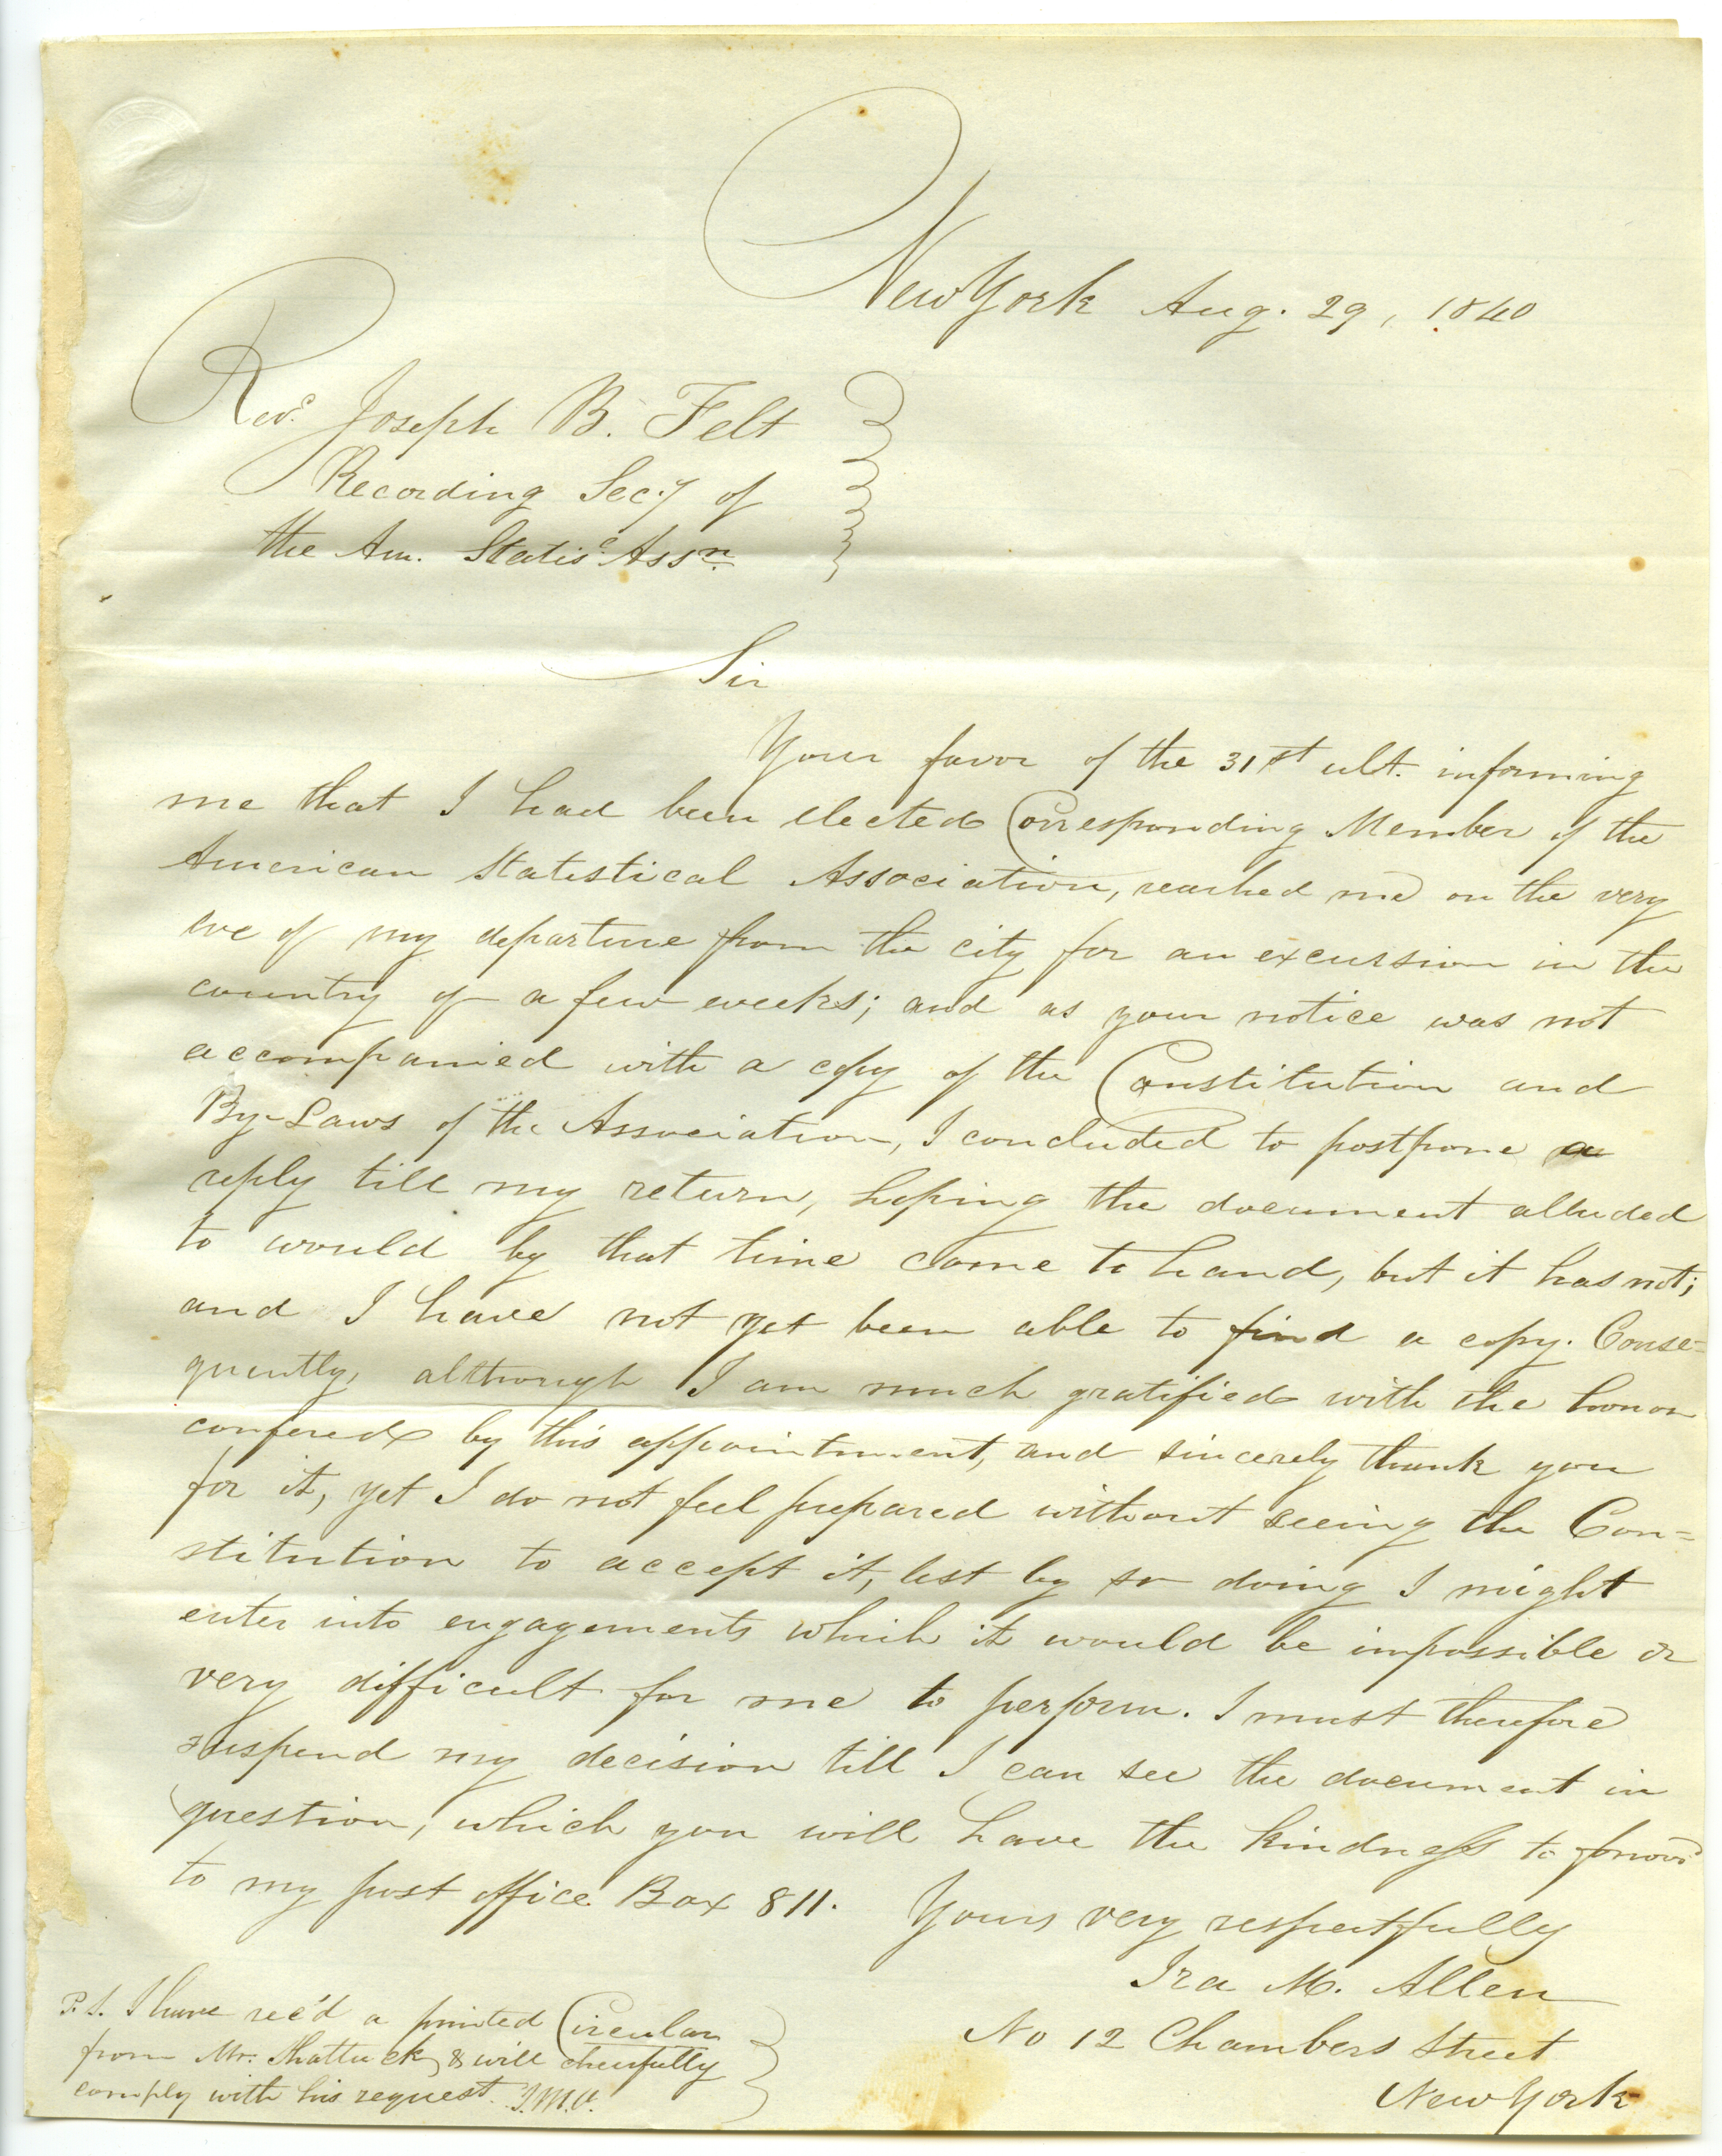 New York Aug. 29, 1840
Revd. Joseph B. Felt
Recording Sec.y of
the Am. Statisc. Assn.
Sir
Your favor of the 31st ult. informing
me that I had been elected Corresponding Member of the
American Statistical Association, reached me on the very
eve of my departure from the city for an excursion in the
country of a few weeks; and as your notice was not
accompanied with a copy of the Constitution and
By-Laws of the Association, I concluded to postpone a
reply till my return, hoping the document alluded
to would by that time come to hand, but it has not;
and I have not yet been able to find a copy. Conse=
quently, although I am much gratified with the honor
confered by this appointment, and sincerely thank you
for it, yet I do not feel prepared without seeing the Con=
stitution to accept it, lest by so doing I might
enter into engagements which it would be impossible or
very difficult for me to perform. I must therefore
suspend my decision till I can see the document in
question, which you will have the kindness to forwd
to my post office Box 811. Yours very respectfully
Ira M. Allen
No 12 Chambers Street
New York
P.S. I have rec'd a printed Circular
from Mr. Shattuck, & will cheerfully
comply with his request. I.M.A.